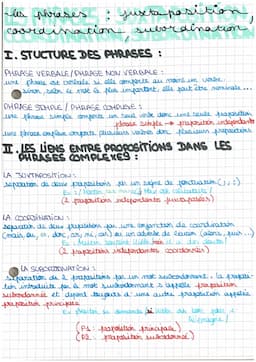 Les phrases : juxtaposition,
coordination, subordination
I. STUCTURE DES PHRASES :
PHRASE VERBALE / PHRASE NON VERBALE :
une phrase est verbale si elle comporte au moins un verbe
sinon, selon le mot le plus important, elle peut être nominale...
PHRASE SIMPLE / PHRASE COMPLEXE :
une phrase simple comporte un seul verbe donc une seule proposition
phrase simple → proposition indépendante
une phrase complexe comporte plusieurs verbes donc plusieurs propositions
II. LES LIENS ENTRE PROPOSITIONS DANS LES
PHRASES COMPLEXES :
LA JUXTAPOSITION :
séparation de deux propositions par un signe de ponctuation (, ; :)
(2 propositions indépendantes juxtaposées)
LA COORDINATION :
séparation de deux propositions par une conjonction de coordination
(mais, ou, et, donc, or, ni, car) ou un adverbe de liaison (alors, puis...)
(2 propositions indépendantes coordonnées)
LA SUBORDINATION :
séparation de 2 propositions par un mot subordonnant : la proposi-
tion introduite par le mot subordonnant s'appelle proposition
subordonnée et dépend toujours d'une autre proposition appelée
proposition principale
(P1 : proposition principale)
(P2 : proposition subordonnée)